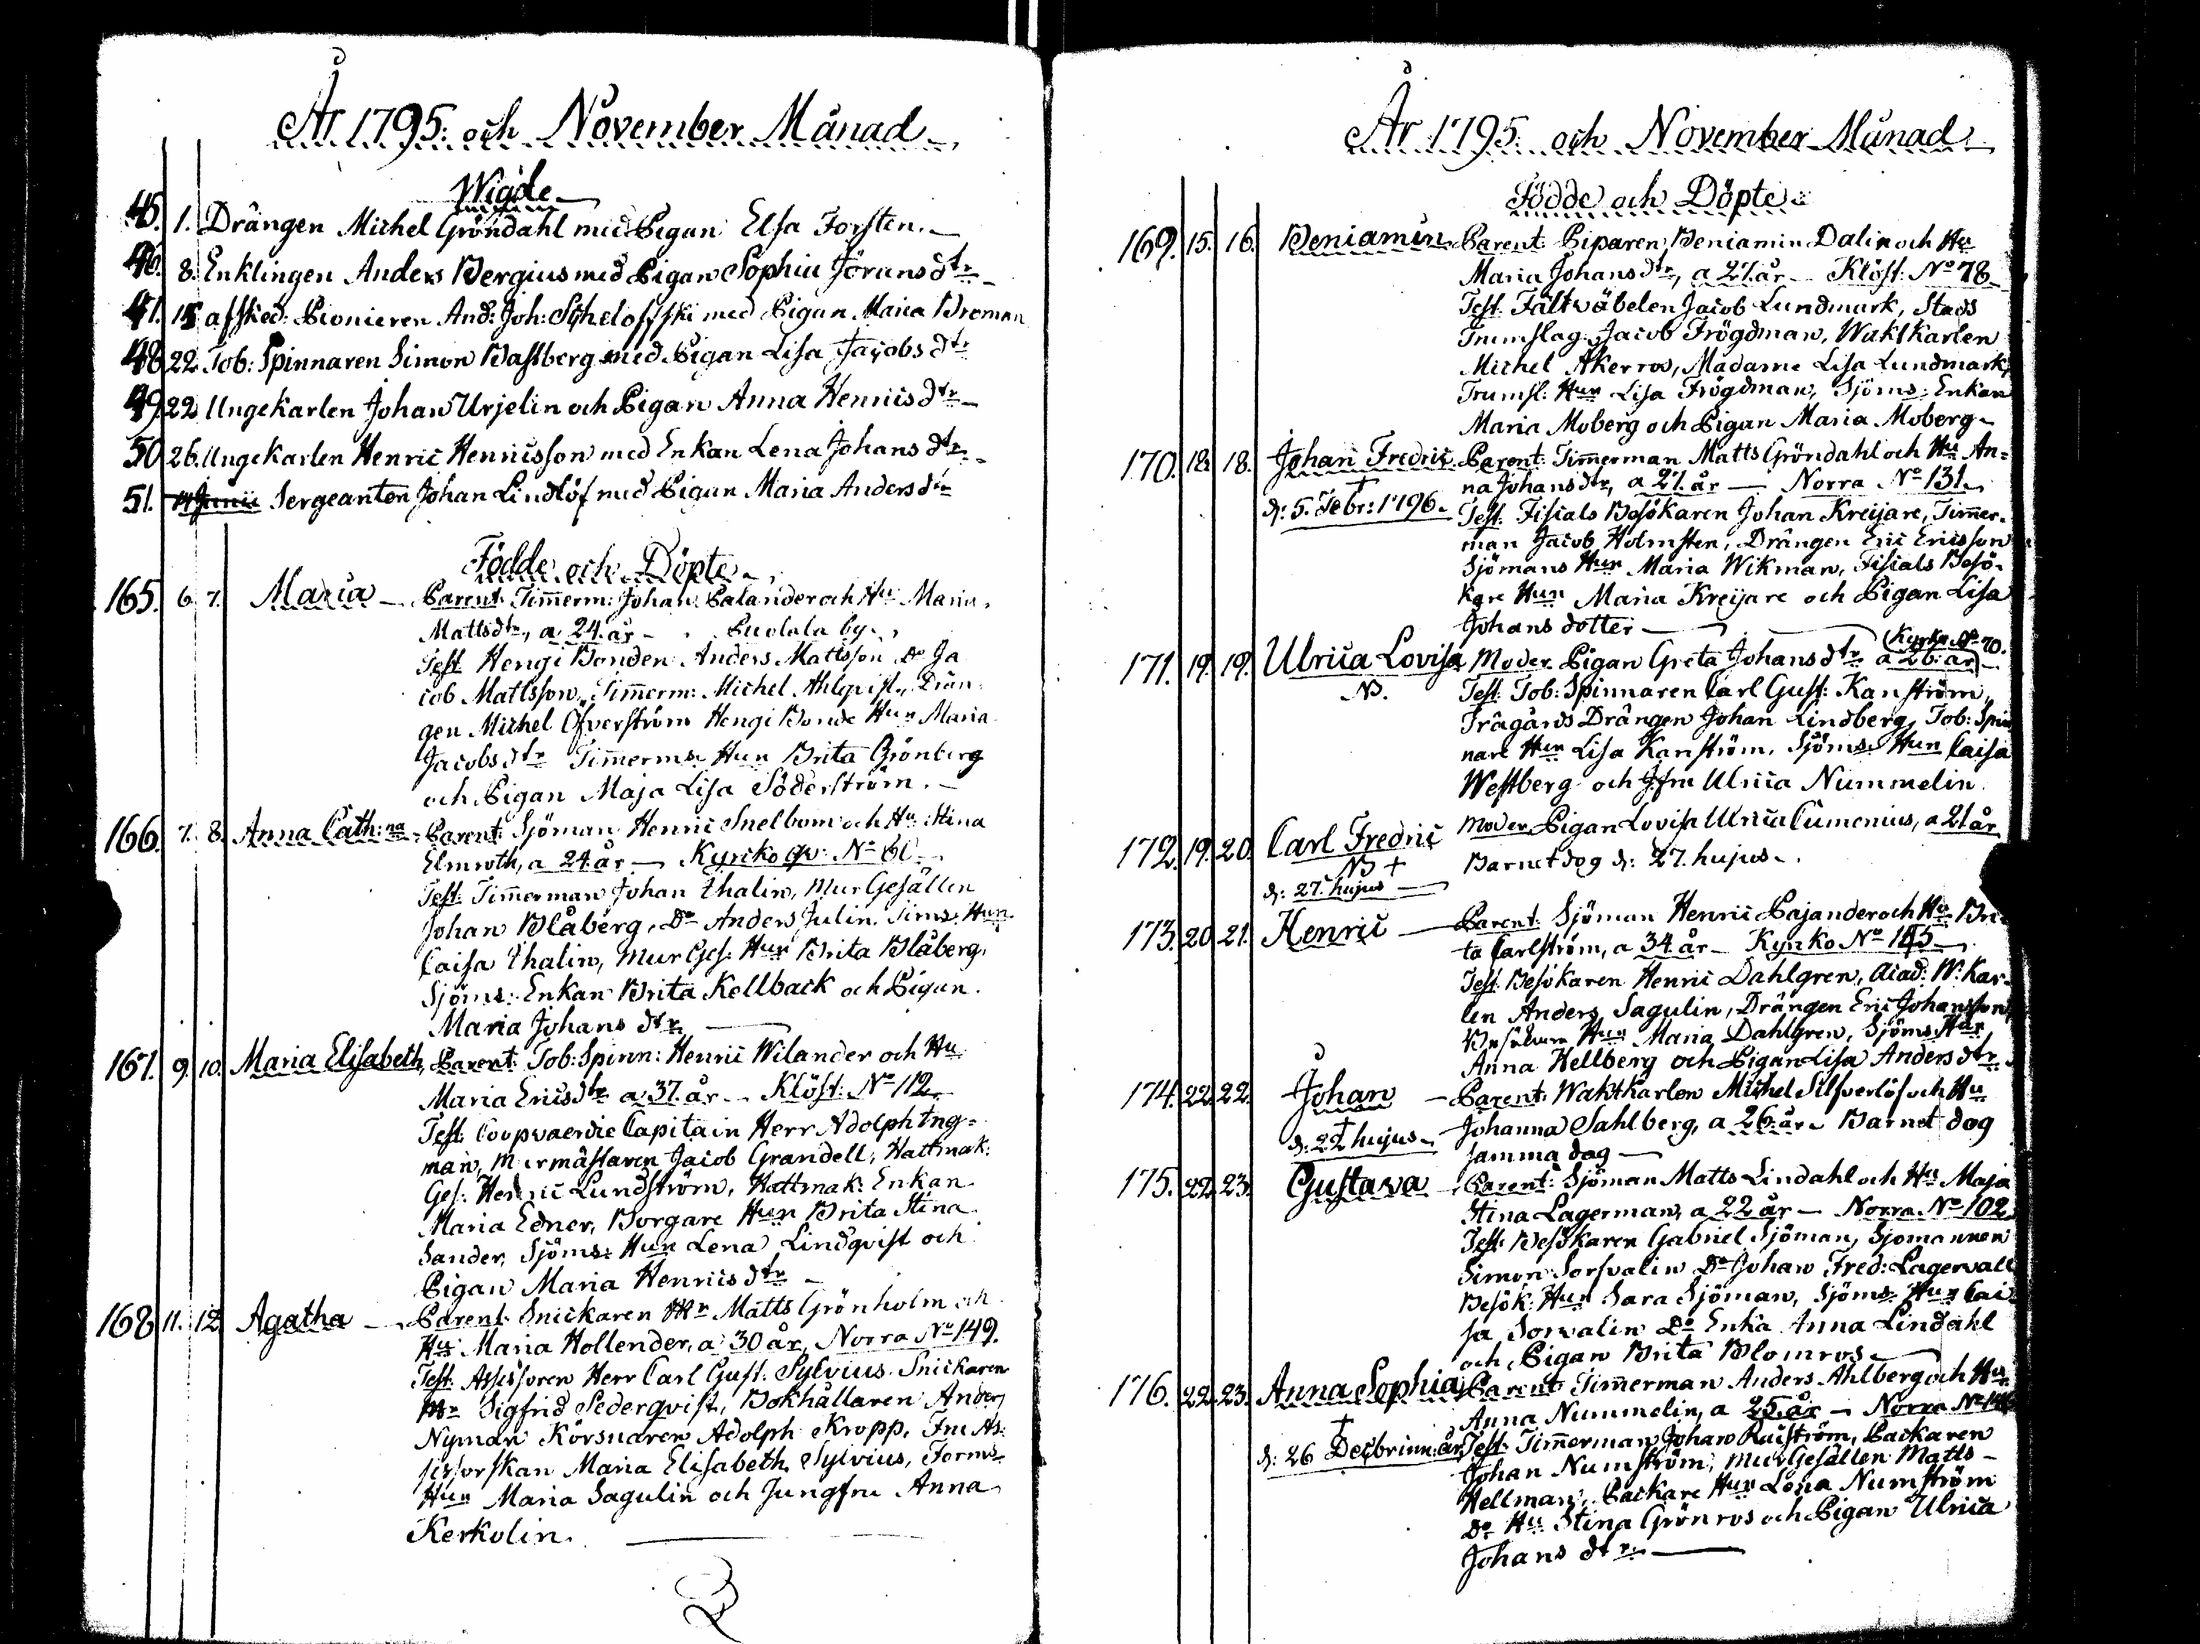 År 1795: och November Månad
Wigde
45. 1. Drängen Michel Gröndahl med Pigan Elsa Forsten.
46. 8. Enklingen Anders Bergius med Pigan Sophia Jörans dtr
47. 15 afsked: Pionieren And: Joh: med Pigan Maria Broman
48 22 Tob: Spinnaren Simon Bassberg med Pigan Lisa Jacobs dtr
49 22 Ungekarlen Johan Urjelin och Pigan Anna Henricsdtr
50 26. Ungekarlen Henric Henricsson med Enkan Lena Johans dtr
51. Sergeanten Johan Lindlöf med Pigan Maria Andersdtr
Födde och Döpte
165. 6. 7. Maria Parent: Tim̄erm: Johan Palander och Hu Maria
Mattsdtr, a 24. år Puolala by.
Test. Hengi Bonden Anders Mattsson Do Ja
cob Mattsson, Tim̄erm: Michel Ahlqvist, Drän
gen Michel Öfverström Hengi Bonde Hun Maria
Jacobsdtr Tim̄erms Hun Brita Grönberg
och Pigan Maja Lisa Söderström.
166. 7. 8. Anna Cath:na Parent: Sjöman Henric Snelbom och Hu Stina
Elmroth, a 24. år Kyrko qv: No 60.
Test: Tim̄erman Johan Thalin, Mur Gesällen
Johan Blåberg, Do Anders Julin. Tims: Hun
Caisa Thalin, Mur Ges: Hun Brita Blåberg,
Sjöms: Enkan Brita Kellback och Pigan
Maria Johans dtr
167. 9. 10. Maria Elisabeth, Parent: Tob: Spinn: Henric Wilander och Hu
Maria Ericsdtr a 37. år Klöst: No 112
Test: Coopvaerdie Capitain Herr Adolph Ing=
man, Murmästaren Jacob Grandell, Hattmak:
Ges: Henric Lundström, Hattmak: Enkan
Maria Edner, Borgare Hun Brita Stina
Sander, Sjöms: Hun Lena Lindqvist och
Pigan Maria Henrics dtr
168 11. 12 Agatha Parent: Snickaren Mr Matts Grönholm och
Hu Maria Hollender, a 30 år, Norra No 149.
Test: Assessoren Herr Carl Gust: Sylvius Snickaren
Mr Sigfrid Sederqvist, Bokhållaren Anders
Nyman Körsnären Adolph Kropp, Fru As:
sessorskan Maria Elisabeth Sylvius, Forms
Hun Maria Sagulin och Jungfru Anna
Kerkolin.
År 1795: och November Månad
Födde och Döpte
169. 15. 16. Beniamin Parent: Piparen Beniamin Dalin och Hu
Maria Johans dtr, a 27. år Klöst: No 78
Test. Fältväbelen Jacob Lundmark, Stads
Trumslag: Jacob Frögdman, Waktkarlen
Michel Åkerros, Madame Lisa Lundmark,
Trumsl: Hun Lisa Frögdman, Sjöms: Enkan
Maria Moberg och Pigan Maria Moberg
170. 18. 18. Johan Fredric Parent: Tim̄erman Matts Gröndahl och Hu An=
na Johansdtr, a 27. år Norra No 131.
† d: 5. Febr: 1796. Test. Fisials Besökaren Johan Kreijare, Tim̄er=
man Jacob Holmsten, Drängen Eric Ericsson
Sjömans Hun Maria Wikman, Fisials Besö=
kare Hun Maria Kreijare och Pigan Lisa
Johans dotter
171. 19. 19. Ulrica Lovisa Moder Pigan Greta Johans dtr a 26: år (Kyrko No 70.
N. Test: Tob: Spinnaren Carl Gust: Kanström,
Trägårds Drängen Johan Lindberg, Tob: Spin
nare Hun Lisa Kanström, Sjöms: Hun Caisa
Westberg och Jfru Ulrica Nummelin
172. 19. 20. Carl Fredric Moder Pigan Lovisa Ulrica Cumenius, a 21 år
N † Barnet dog d: 27. hujus.
d: 27. hujus
173. 20. 21. Henric Parent: Sjöman Henric Pajander och Hu Bri
ta Carlström, a 34 år Kyrko No 145
Test. Besökaren Henric Dahlgren, Acad: W: Kar=
len Anders Sagulin, Drängen Eric Johansson,
Besökare Hun Maria Dahlgren, Sjöms Hun
Anna Hellberg och Pigan Lisa Anders dtr
174. 22 22. Johan Parent: Waktkarlen Michel Silfverlöf och Hu
† d: 22 hujus Johanna Sahlberg, a 26 år Barnet dog
samma dag
175. 22. 23. Gustava Parent: Sjöman Matts Lindahl och Hu Maja
Stina Lagerman, a 22 år Norra No 102.
Test: Besökaren Gabriel Sjöman, Sjömannen
Simon Sorvalin Do Johan Fred: Lagervall
Besök: Hun Sara Sjöman, Sjöms Hun Cai
sa Sorvalin Do Enka Anna Lindahl
och Pigan Brita Blomros
176. 22. 23. Anna Sophia Parent Tim̄erman Anders Ahlberg och Hu
Anna Nummelin, a 25. år Norra No
† d: 26 Decbr inn: år Test: Tim̄erman Johan Raiström, Packaren
Johan Numström, Mur Gesällen Matts
Hellman, Packare Hun Lena Numström
Do Hu Stina Grönros och Pigan Ulrica
Johans dtr